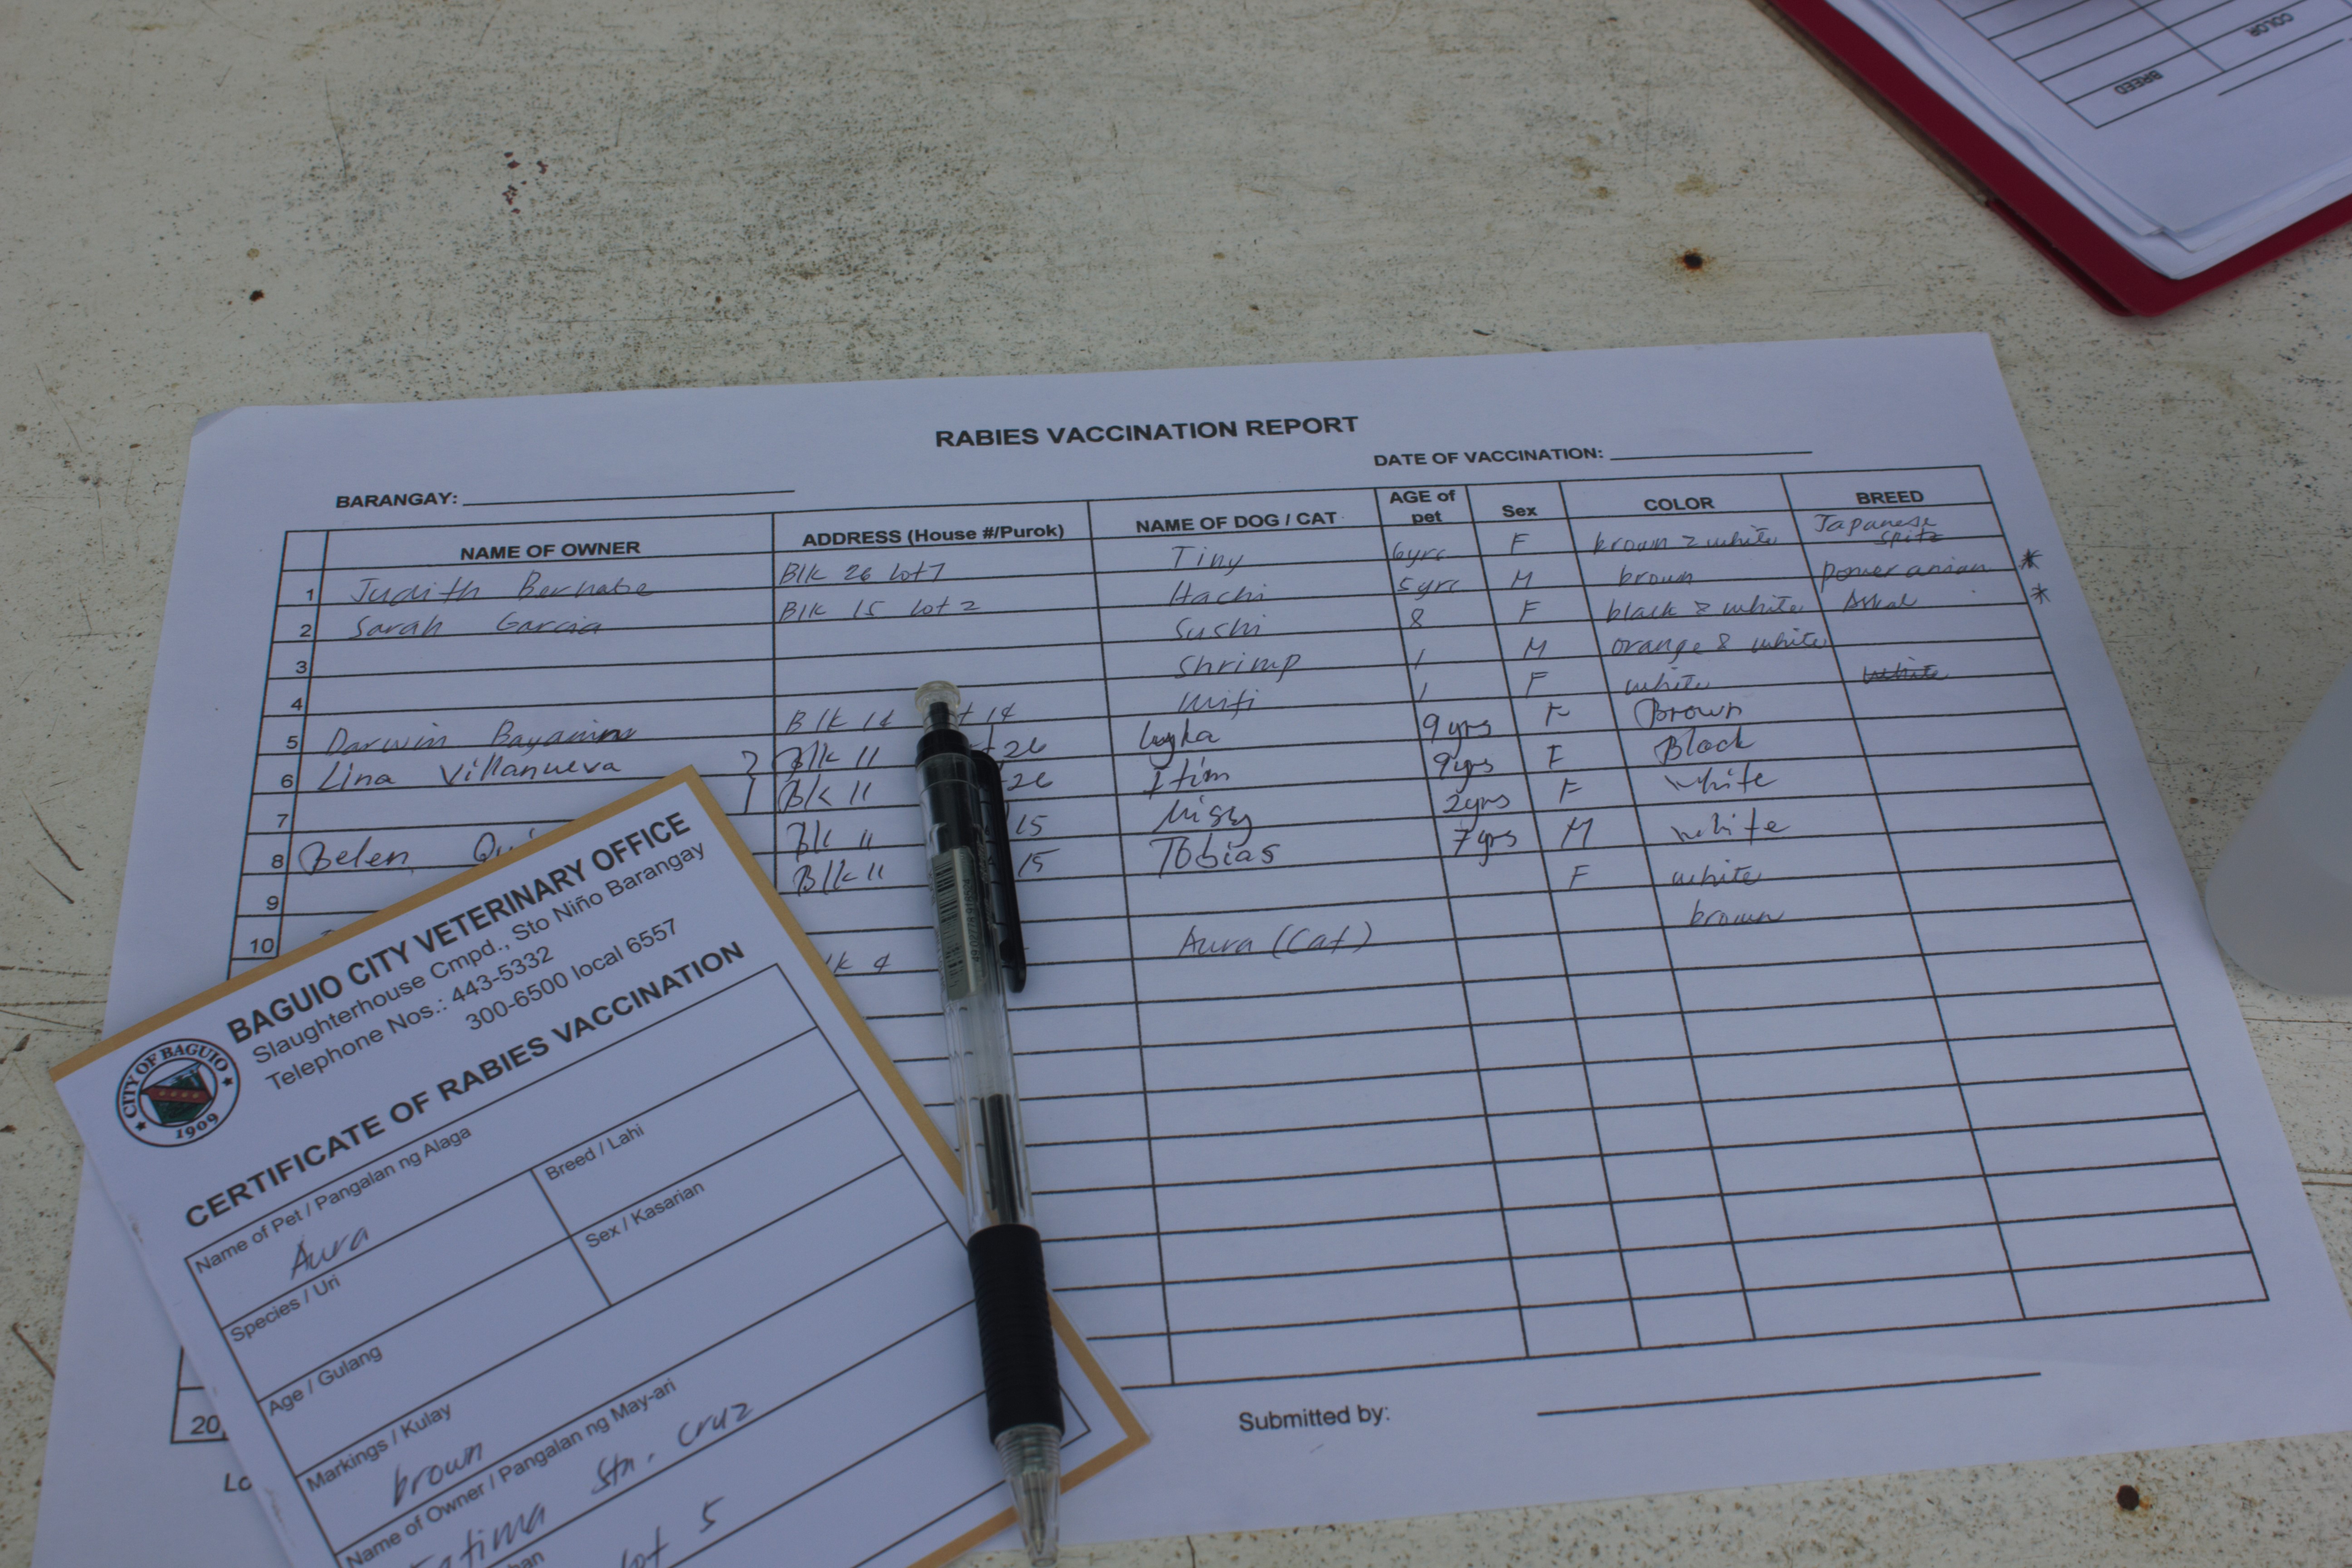 COLOR
BREED
RABIES VACCINATION REPORT
BARANGAY: DATE OF VACCINATION:
NAME OF OWNER ADDRESS (House #/Purok) NAME OF DOG / CAT AGE of pet Sex COLOR BREED
1 Judith Bernabe Blk 26 lot 7 Tiny 6yrs F brown & white Japanese spitz
2 Sarah Garcia Blk 15 lot 2 Hachi 5yrs M brown pomeranian *
3 Sushi 8 F black & white Askal *
4 Shrimp 1 M orange & white
5 Darwin Bayanin Blk 14 14 Mifi 1 F white white
6 Lina Villanueva Blk 11 26 9yrs F Brown
7 Blk 11 26 Itim 9yrs F Black
8 Belen Blk 11 15 Missy 2yrs F white
9 Blk 11 15 Tobias 7yrs M white
10 F white
4 Aura (Cat) brown
20
Submitted by:
BAGUIO CITY VETERINARY OFFICE
Slaughterhouse Cmpd., Sto Niño Barangay
Telephone Nos.: 443-5332
300-6500 local 6557
CITY OF BAGUIO
1909
CERTIFICATE OF RABIES VACCINATION
Name of Pet / Pangalan ng Alaga
Aura
Breed / Lahi
Species / Uri
Sex / Kasarian
Age / Gulang
Markings / Kulay
brown
Name of Owner / Pangalan ng May-ari
Fatima Sta. Cruz
lot 5